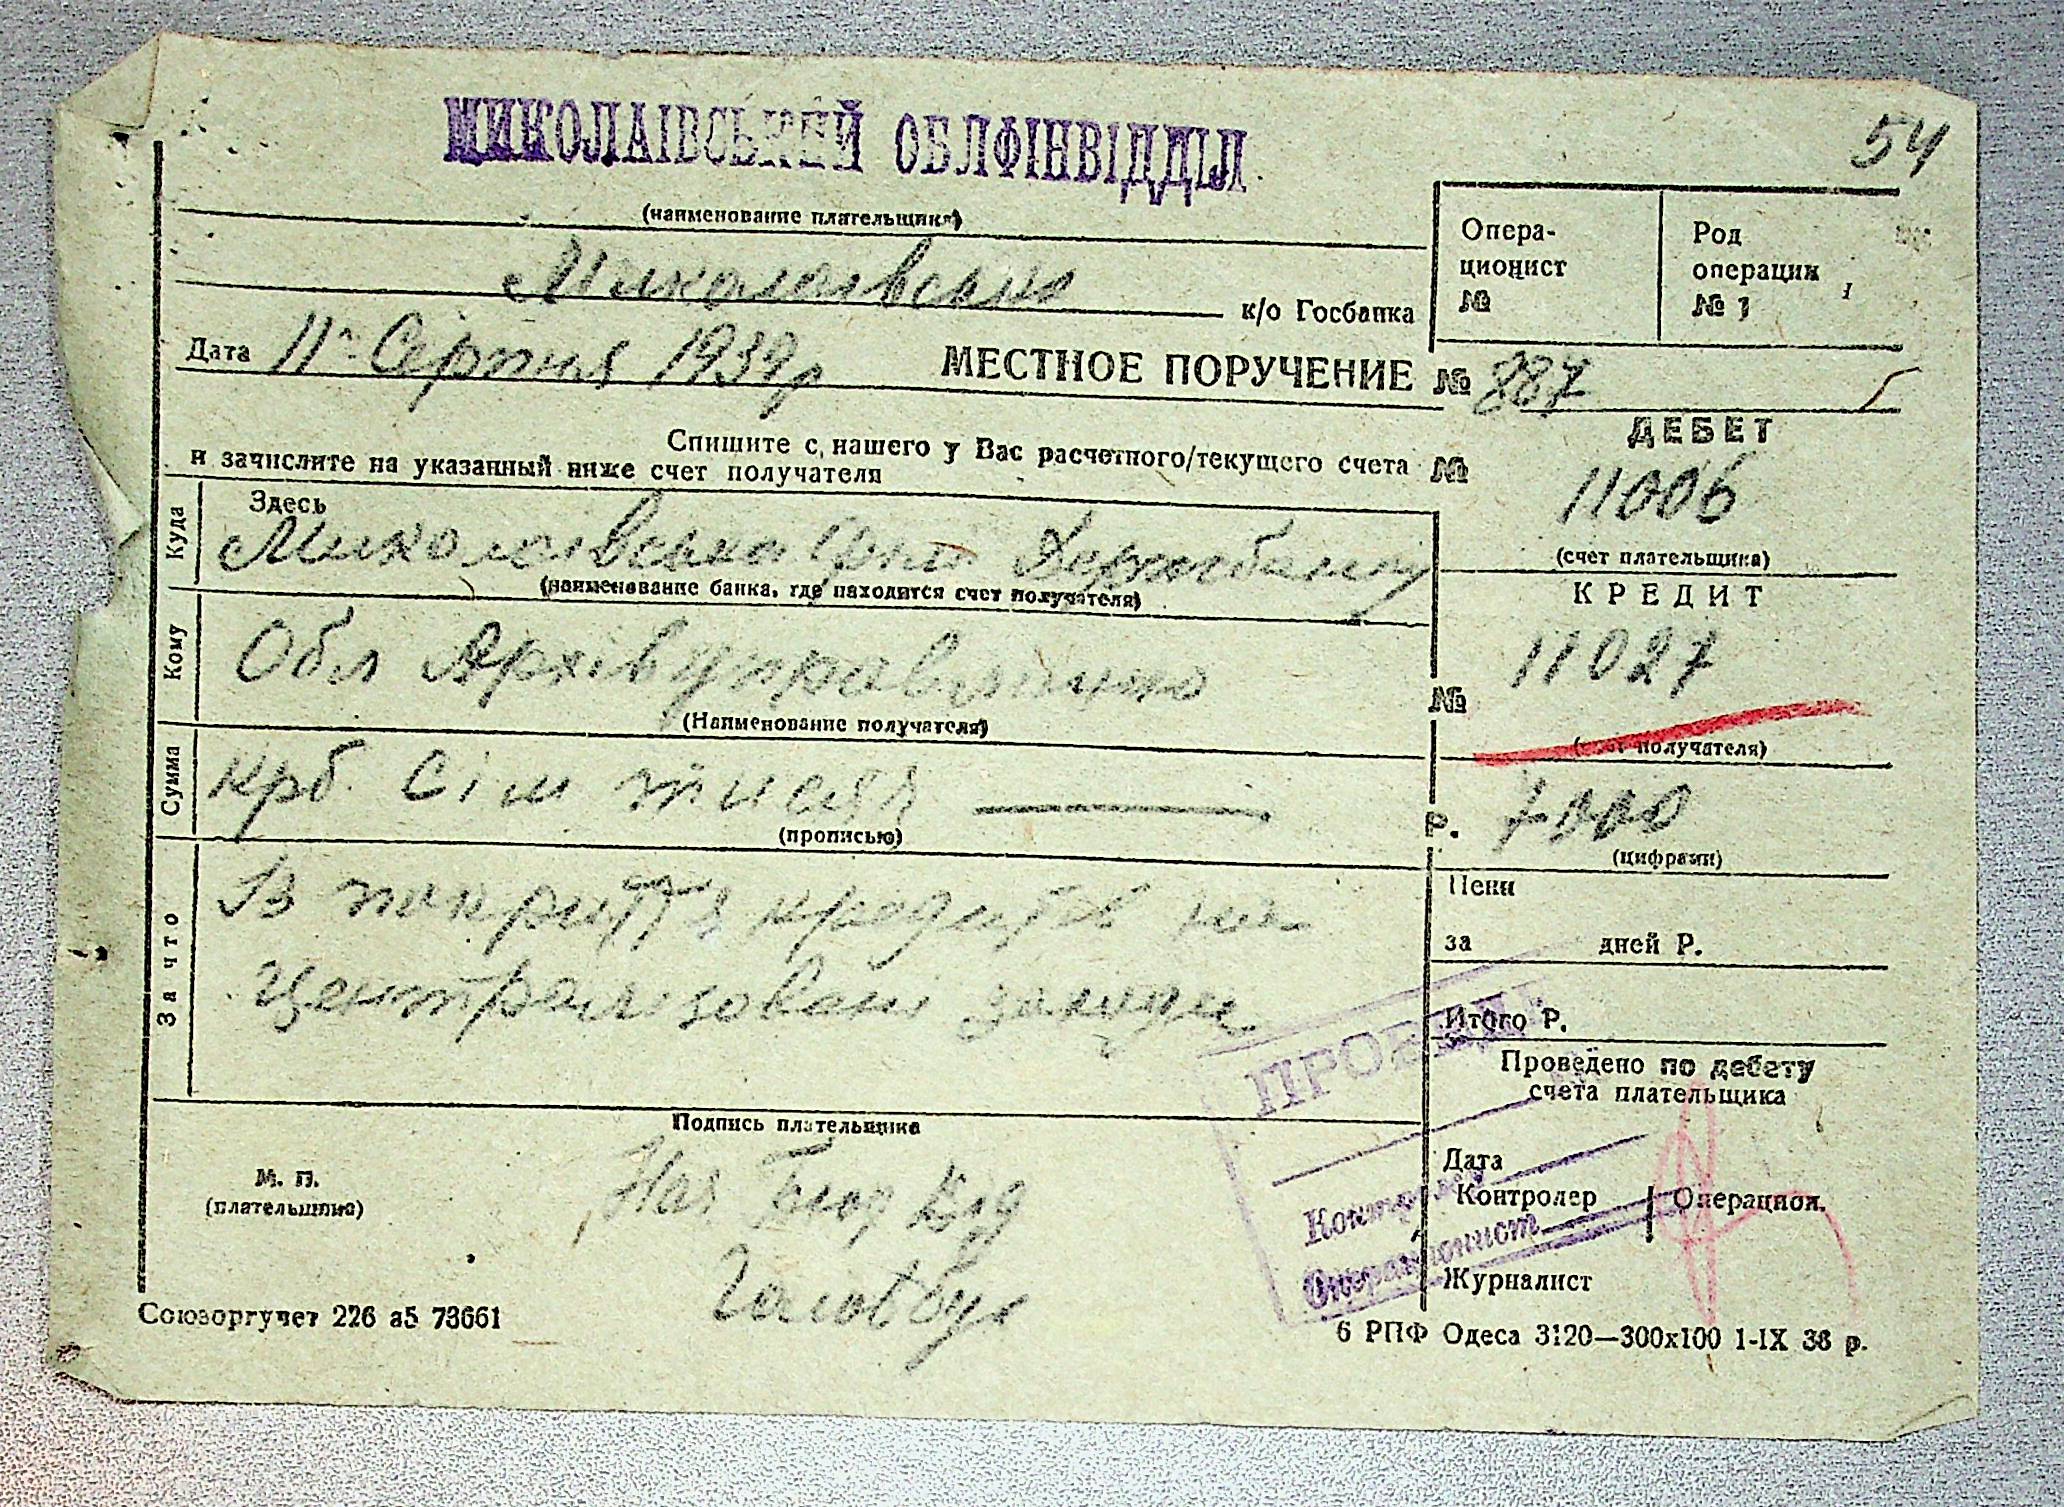 54
МИКОЛАІВСЬКИЙ ОБЛФІНВІДДІЛ
(наименование плательщика)
Опера-
ционист
№
Род
операции
№ 1
Миколаївськи к/о Госбанка
Дата 11го Серпня 1939 р МЕСТНОЕ ПОРУЧЕНИЕ № 887
Спишите с нашего у Вас расчетного/текущего счета №
и зачислите на указанный ниже счет получателя
ДЕБЕТ
11006
(счет плательщика)
Куда
Здесь
Миколаївська Держбанку
(наименование банка, где находится счет получателя)
КРЕДИТ
№ 11027
(счет получателя)
Кому
Обл Архівуправлінню
(Наименование получателя)
Сумма
крб. Сім тисяч
(прописью)
Р. 7000
(цифрами)
За что
В покриття кредитів на
централізовані заходи
Пени
за дней Р.
Итого Р.
Проведено по дебету
счета плательщика
ПРОВЕДЕНО
Дата
Контролер Операцион.
Журналист
Контролер
Операционист
Подпись плательщика
М. П.
(плательщика)
Нач Бюд Від
Головбух
Союзоргучет 226 а5 73661
6 РПФ Одеса 3120—300х100 1-IX 38 р.